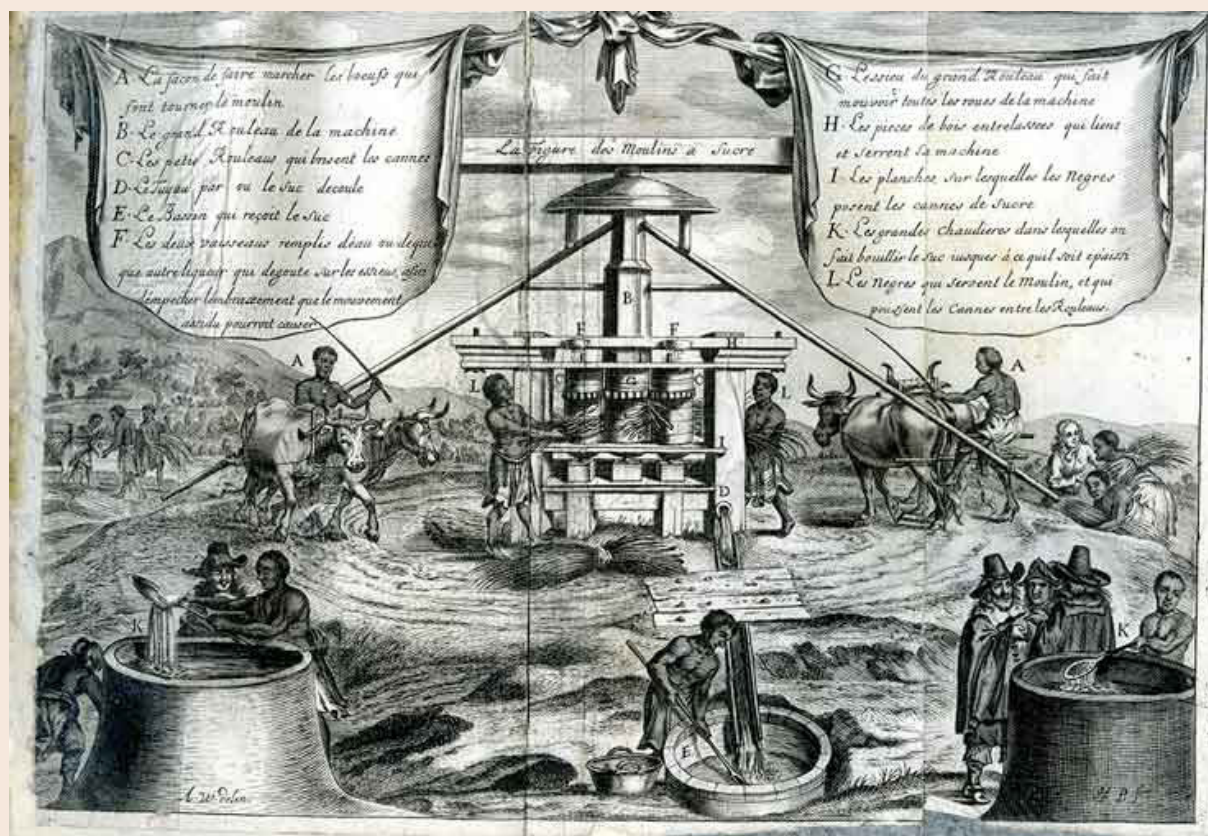 A La façon de faire marcher les boeufs qui
font tourner le moulin
B. Le grand Rouleau de la machine
C. Les petis Rouleaus qui brisent les cannes
D. Le Tuyau par ou le suc decoule
E. Le Bassin qui reçoit le suc
F. Les deux vaisseaus remplis d'eau ou de quel
que autre liqueur qui degoute sur les essieus, afin
d'empecher l'embrazement que le mouvement
assidu pourroit causer
La figure des Moulins a Sucre
G. L'essieu du grand Rouleau qui fait
mouvoir toutes les roues de la machine
H. Les pieces de bois entrelassees qui lient
et serrent la machine
I Les planches sur lesquelles les Negres
posent les cannes de sucre
K. Les grandes chaudieres dans lesquelles on
fait bouillir le suc iusques à ce qu'il soit epaissi
L. Les negres qui servent le Moulin, et qui
poussent les Cannes entre les Rouleaus.
B
F F
H
A A
L C G C L
I
D
K K
E
A. W. delin.